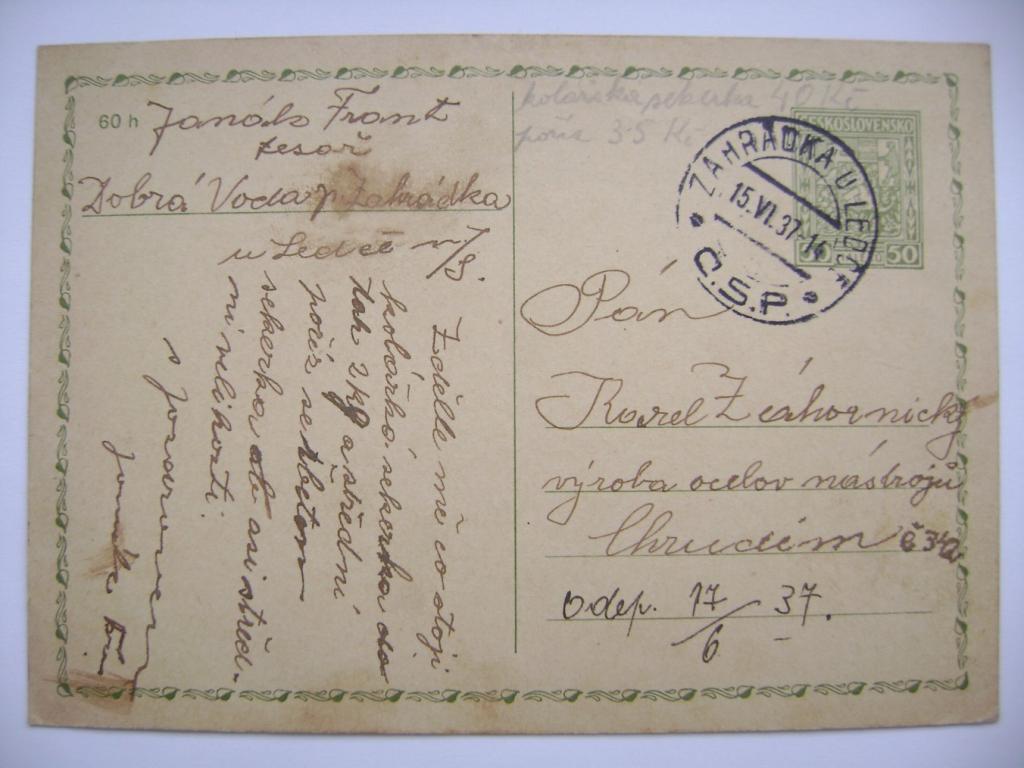 60 h Janák Frant
tesař
Dobrá Voda p. Zahrádka
u Ledče n/S.
Zdělte mě co stojí
kolářská sekerka do
tak 2 kg a střední
pořís
sekerka ale asi střed-
ní velikosti.
s pozdravem
Janák Fr.
kolářská sekerka 40 Kč
pořís 35 Kč
ČESKOSLOVENSKO
50 50
ZAHRÁDKA U LEDČE
15.VI.37-14
Č.S.P.
Pán
Karel Záhornický
výroba ocelov nástrojů
Chrudim
Odep. 17/6 37.